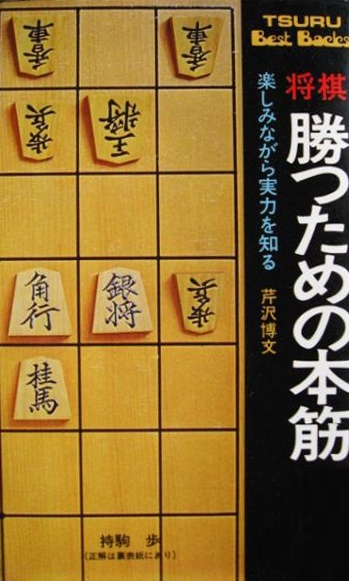 TSURU
Best Backs
将棋
勝つための本筋
楽しみながら実力を知る
芹沢博文
香車
香車
歩兵
王将
角行
銀将
歩兵
桂馬
持駒 歩
(正解は裏表紙にあり)